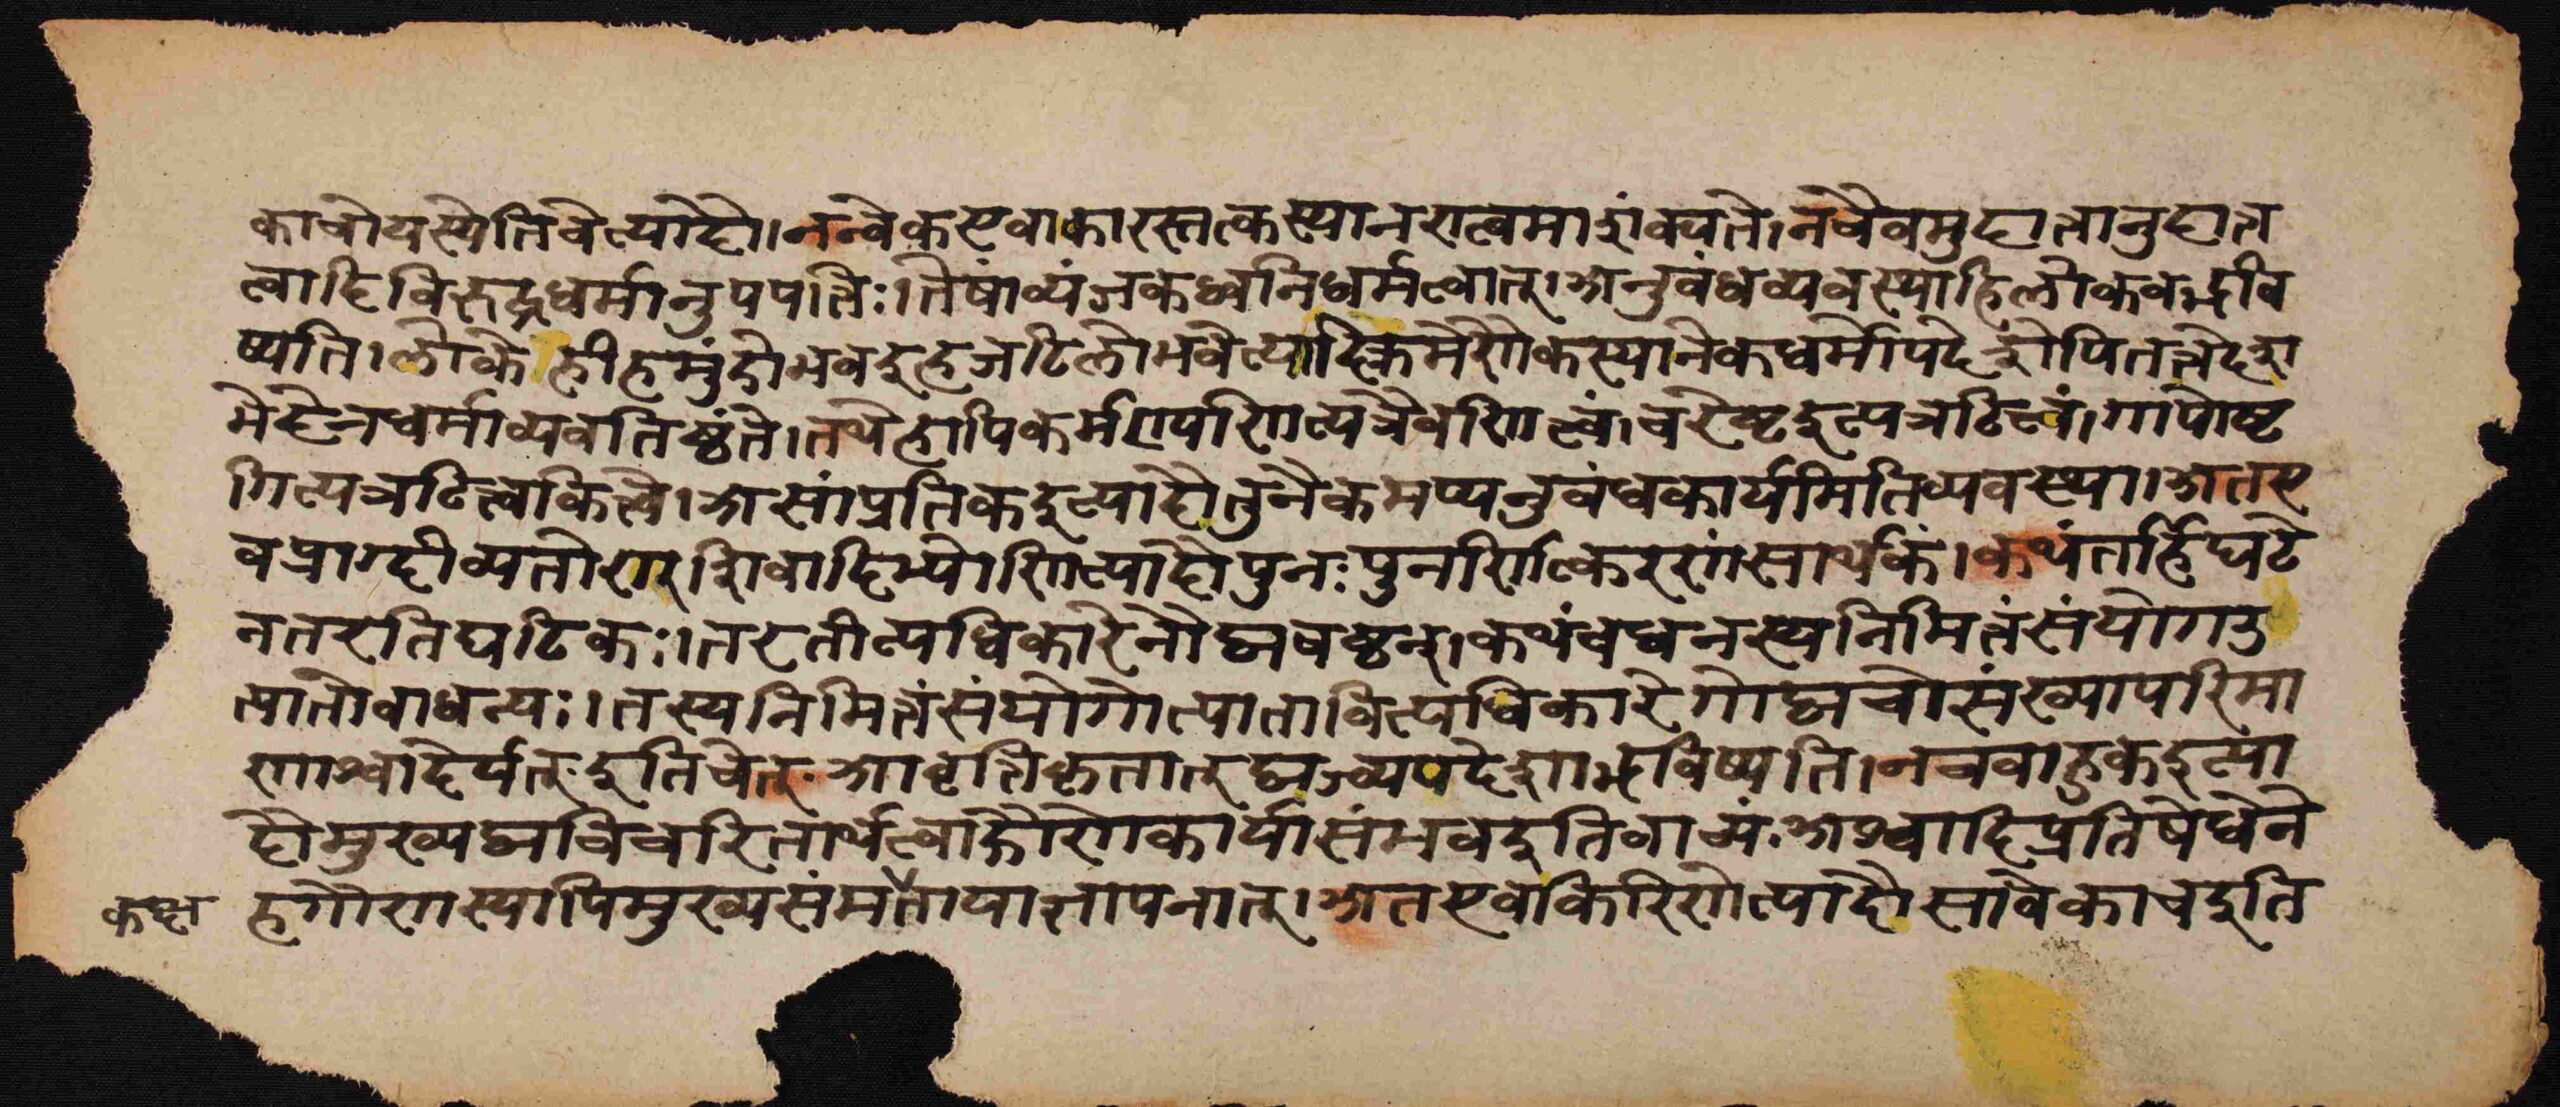 काचोयस्येतिवेत्यादौ।नन्वेकएवाकारस्तत्कस्यानरात्वमाशंक्यते।नचैवमुदात्तानुदात्त
त्वादिविरुद्धधर्मानुपपत्तिः।तेषांव्यंजकध्वनिधर्मत्वात्।अनुबंधव्यवस्थाहिलोकवद्भवि
ष्यति।लोकेहीहमुंडोभवइहजटिलोभवेत्यादिक्रमेणैकस्यानेकधर्मोपदेशेपितत्तद्देश
भेदेनधर्माव्यवतिष्ठंते।तथेहापिकर्मण्यणित्यत्रैवणित्त्वं।चरेष्टइत्यत्रटित्त्वं।गापोष्ट
गित्यत्रटित्त्वकित्त्वे।असांप्रतिकइत्यादौतुनैकमप्यनुबंधकार्यमितिव्यवस्था।अतए
वप्राग्दीव्यतोण्शिवादिभ्योणित्यादौपुनःपुनर्णित्करणंसार्थकं।कथंतर्हिघटे
नतरतिघटिकः।तरतीत्यधिकारेनौद्व्यचष्ठन्।कथंचधनस्यनिमित्तंसंयोगउ
त्पातोवाधन्यः।तस्यनिमित्तंसंयोगोत्पातावित्यधिकारेगोद्व्यचोसंख्यापरिमा
णाश्वादेर्यत्इतिचेत्आवृत्तिकृतात्द्व्यज्व्यपदेशाद्भविष्यति।नचबाहुकइत्या
दौमुख्यद्व्यचिचरितार्थत्वाद्गौणेकार्यासंभवइतिवाच्यं.अश्वादिप्रतिषेधेने
हगौणस्यापिमुख्यसंमतायाज्ञापनात्।अतएवकिरिणेत्यादौसावेकाचइति